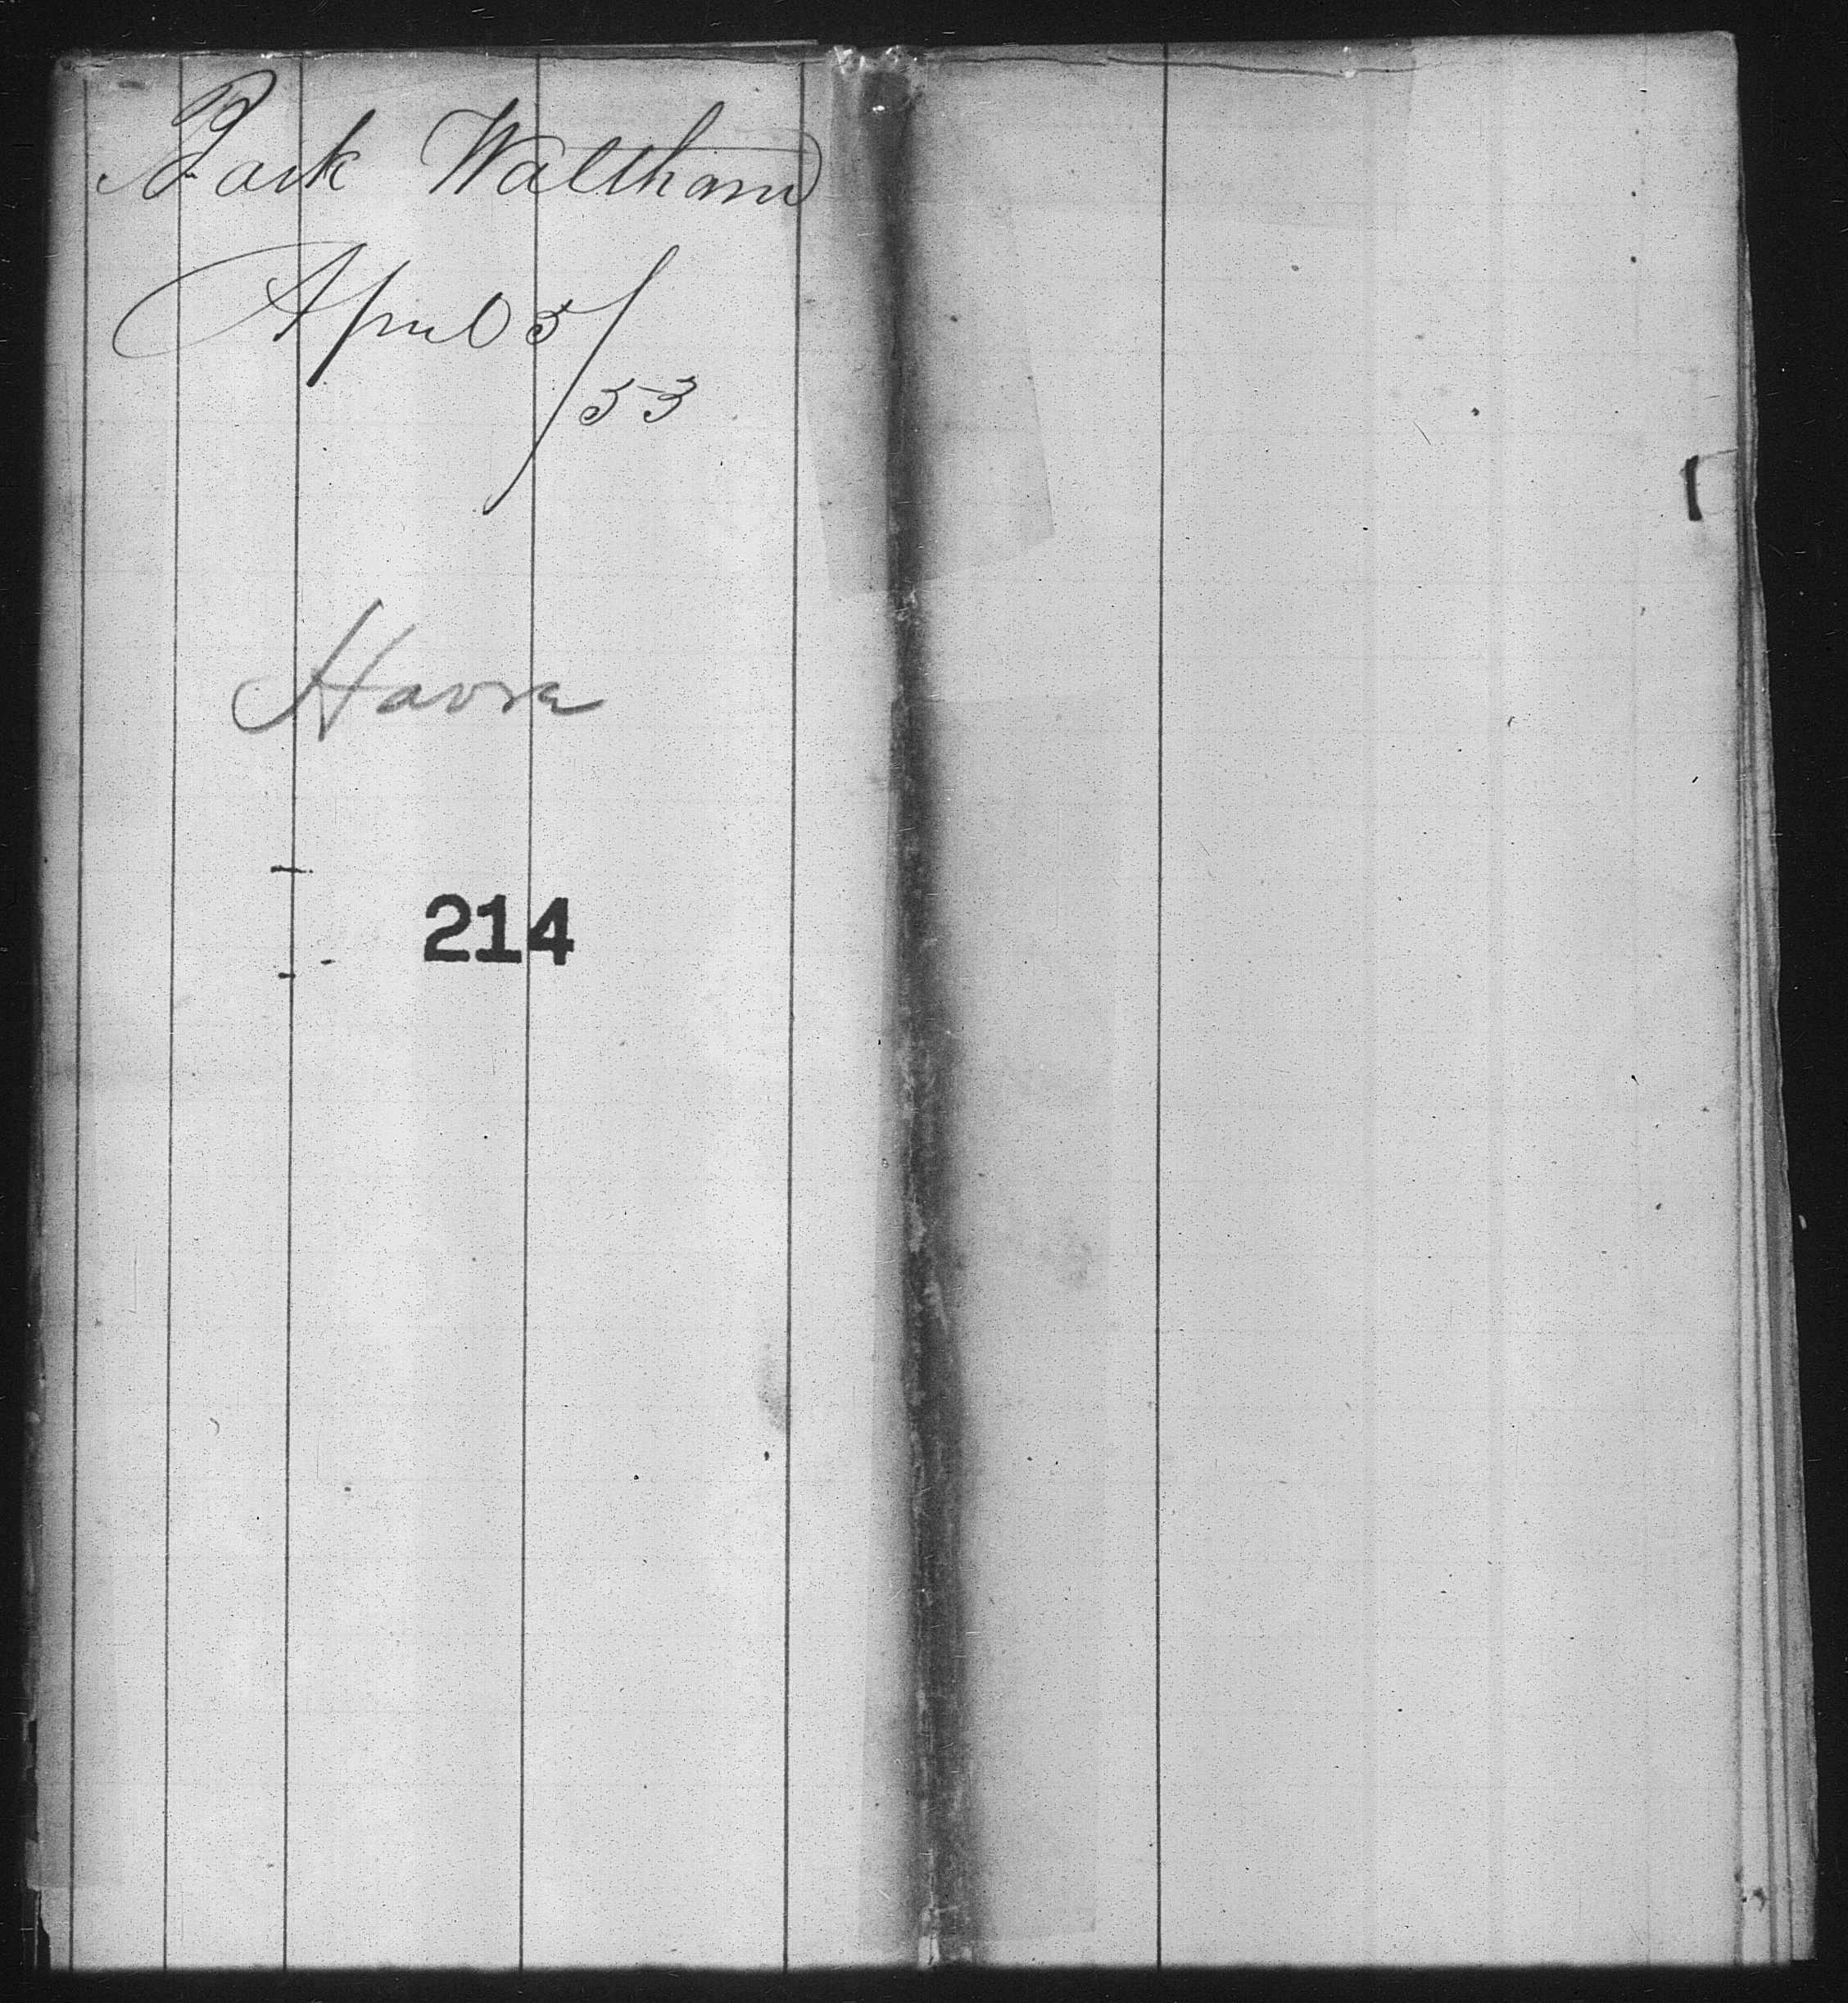 Bark Waltham
April 5/53
Havre
214